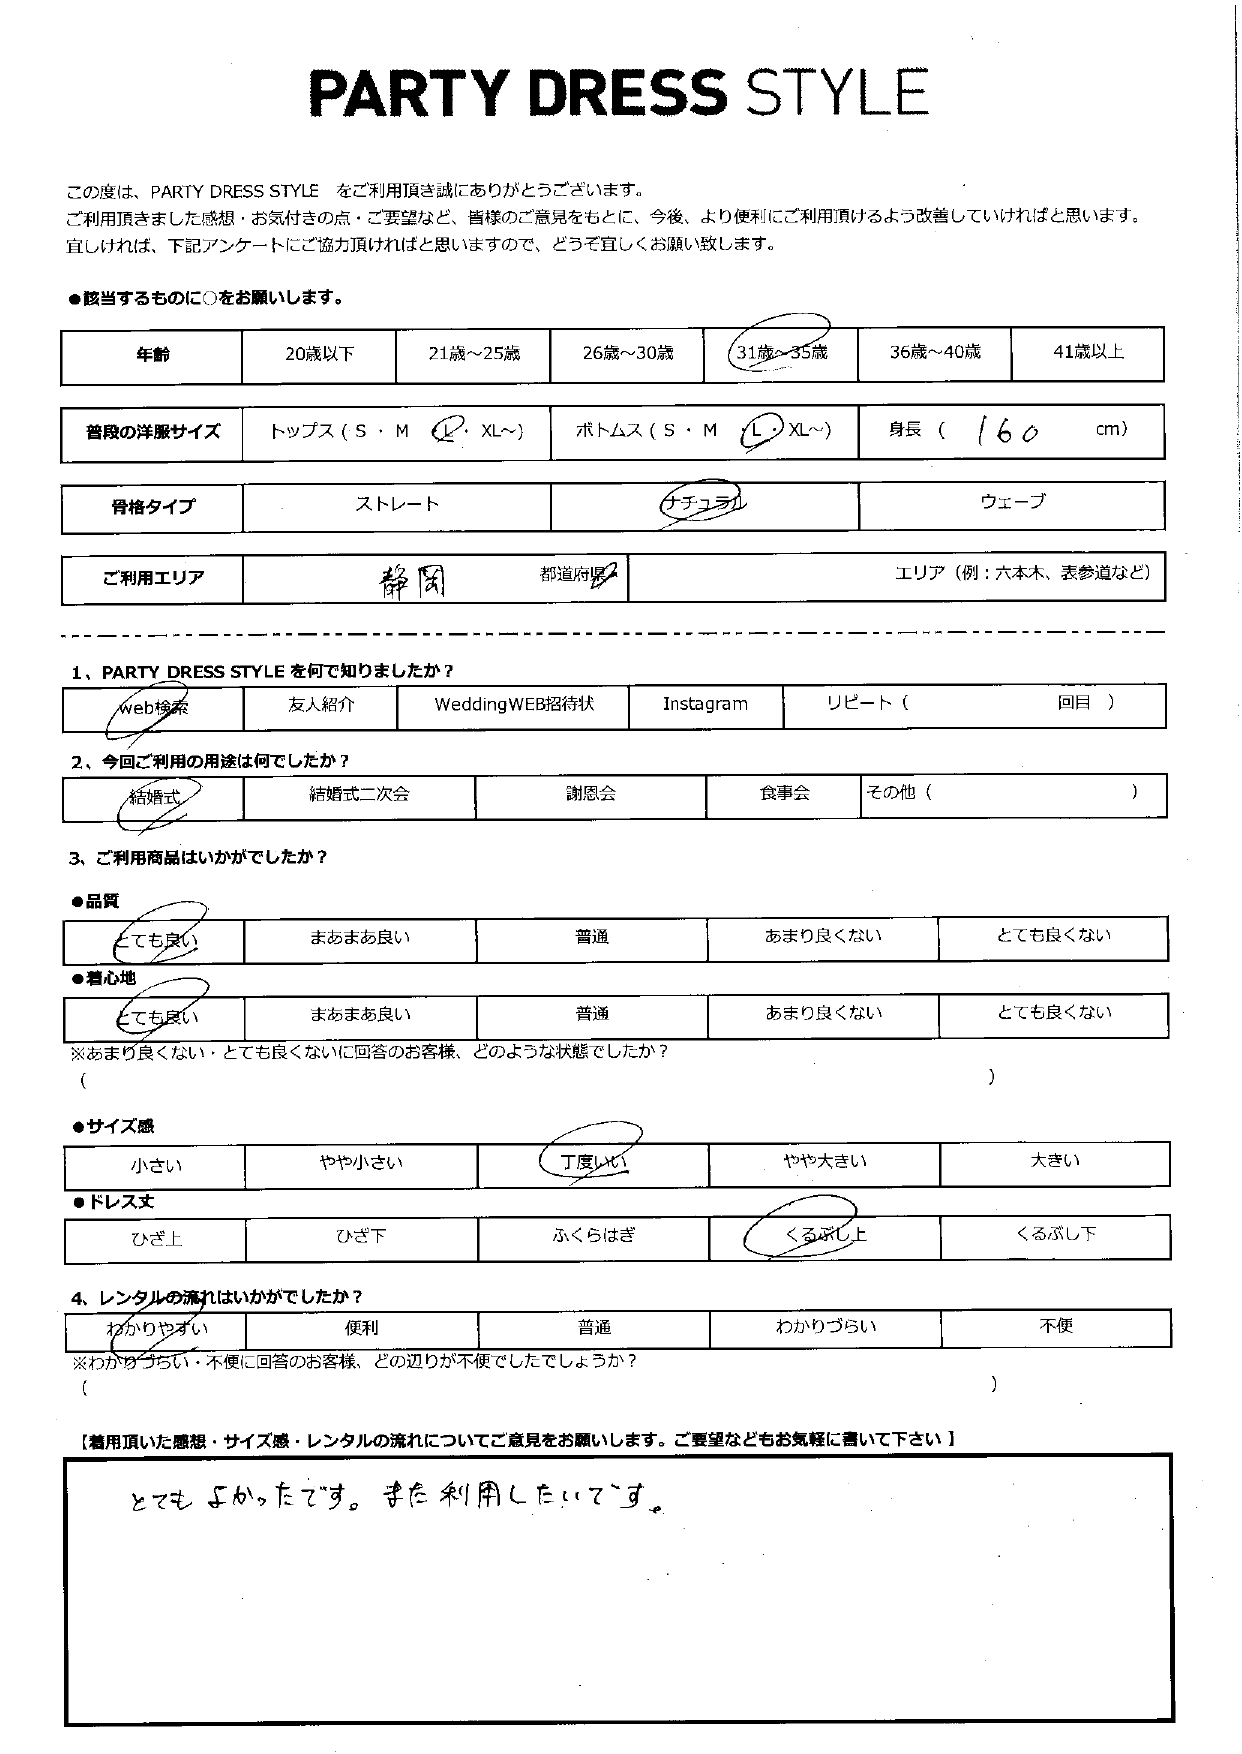 PARTY DRESS STYLE
この度は、PARTY DRESS STYLE をご利用頂き誠にありがとうございます。
ご利用頂きました感想・お気付きの点・ご要望など、皆様のご意見をもとに、今後、より便利にご利用頂けるよう改善していければと思います。
宜しければ、下記アンケートにご協力頂ければと思いますので、どうぞ宜しくお願い致します。
●該当するものに○をお願いします。
年齢 20歳以下 21歳～25歳 26歳～30歳 31歳～35歳 36歳～40歳 41歳以上
普段の洋服サイズ トップス ( S ・ M ・ L ・ XL～) ボトムス ( S ・ M ・ L ・ XL～) 身長 ( 160 cm)
骨格タイプ ストレート ナチュラル ウェーブ
ご利用エリア 静岡 都道府県 エリア（例：六本木、表参道など）
1、PARTY DRESS STYLE を何で知りましたか？
web検索 友人紹介 WeddingWEB招待状 Instagram リピート（ 回目 ）
2、今回ご利用の用途は何でしたか？
結婚式 結婚式二次会 謝恩会 食事会 その他（ ）
3、ご利用商品はいかがでしたか？
●品質
とても良い まあまあ良い 普通 あまり良くない とても良くない
●着心地
とても良い まあまあ良い 普通 あまり良くない とても良くない
※あまり良くない・とても良くないに回答のお客様、どのような状態でしたか？
( )
●サイズ感
小さい やや小さい 丁度いい やや大きい 大きい
●ドレス丈
ひざ上 ひざ下 ふくらはぎ くるぶし上 くるぶし下
4、レンタルの流れはいかがでしたか？
わかりやすい 便利 普通 わかりづらい 不便
※わかりづらい・不便に回答のお客様、どの辺りが不便でしたでしょうか？
( )
【着用頂いた感想・サイズ感・レンタルの流れについてご意見をお願いします。ご要望などもお気軽に書いて下さい】
とてもよかったです。また利用したいです。